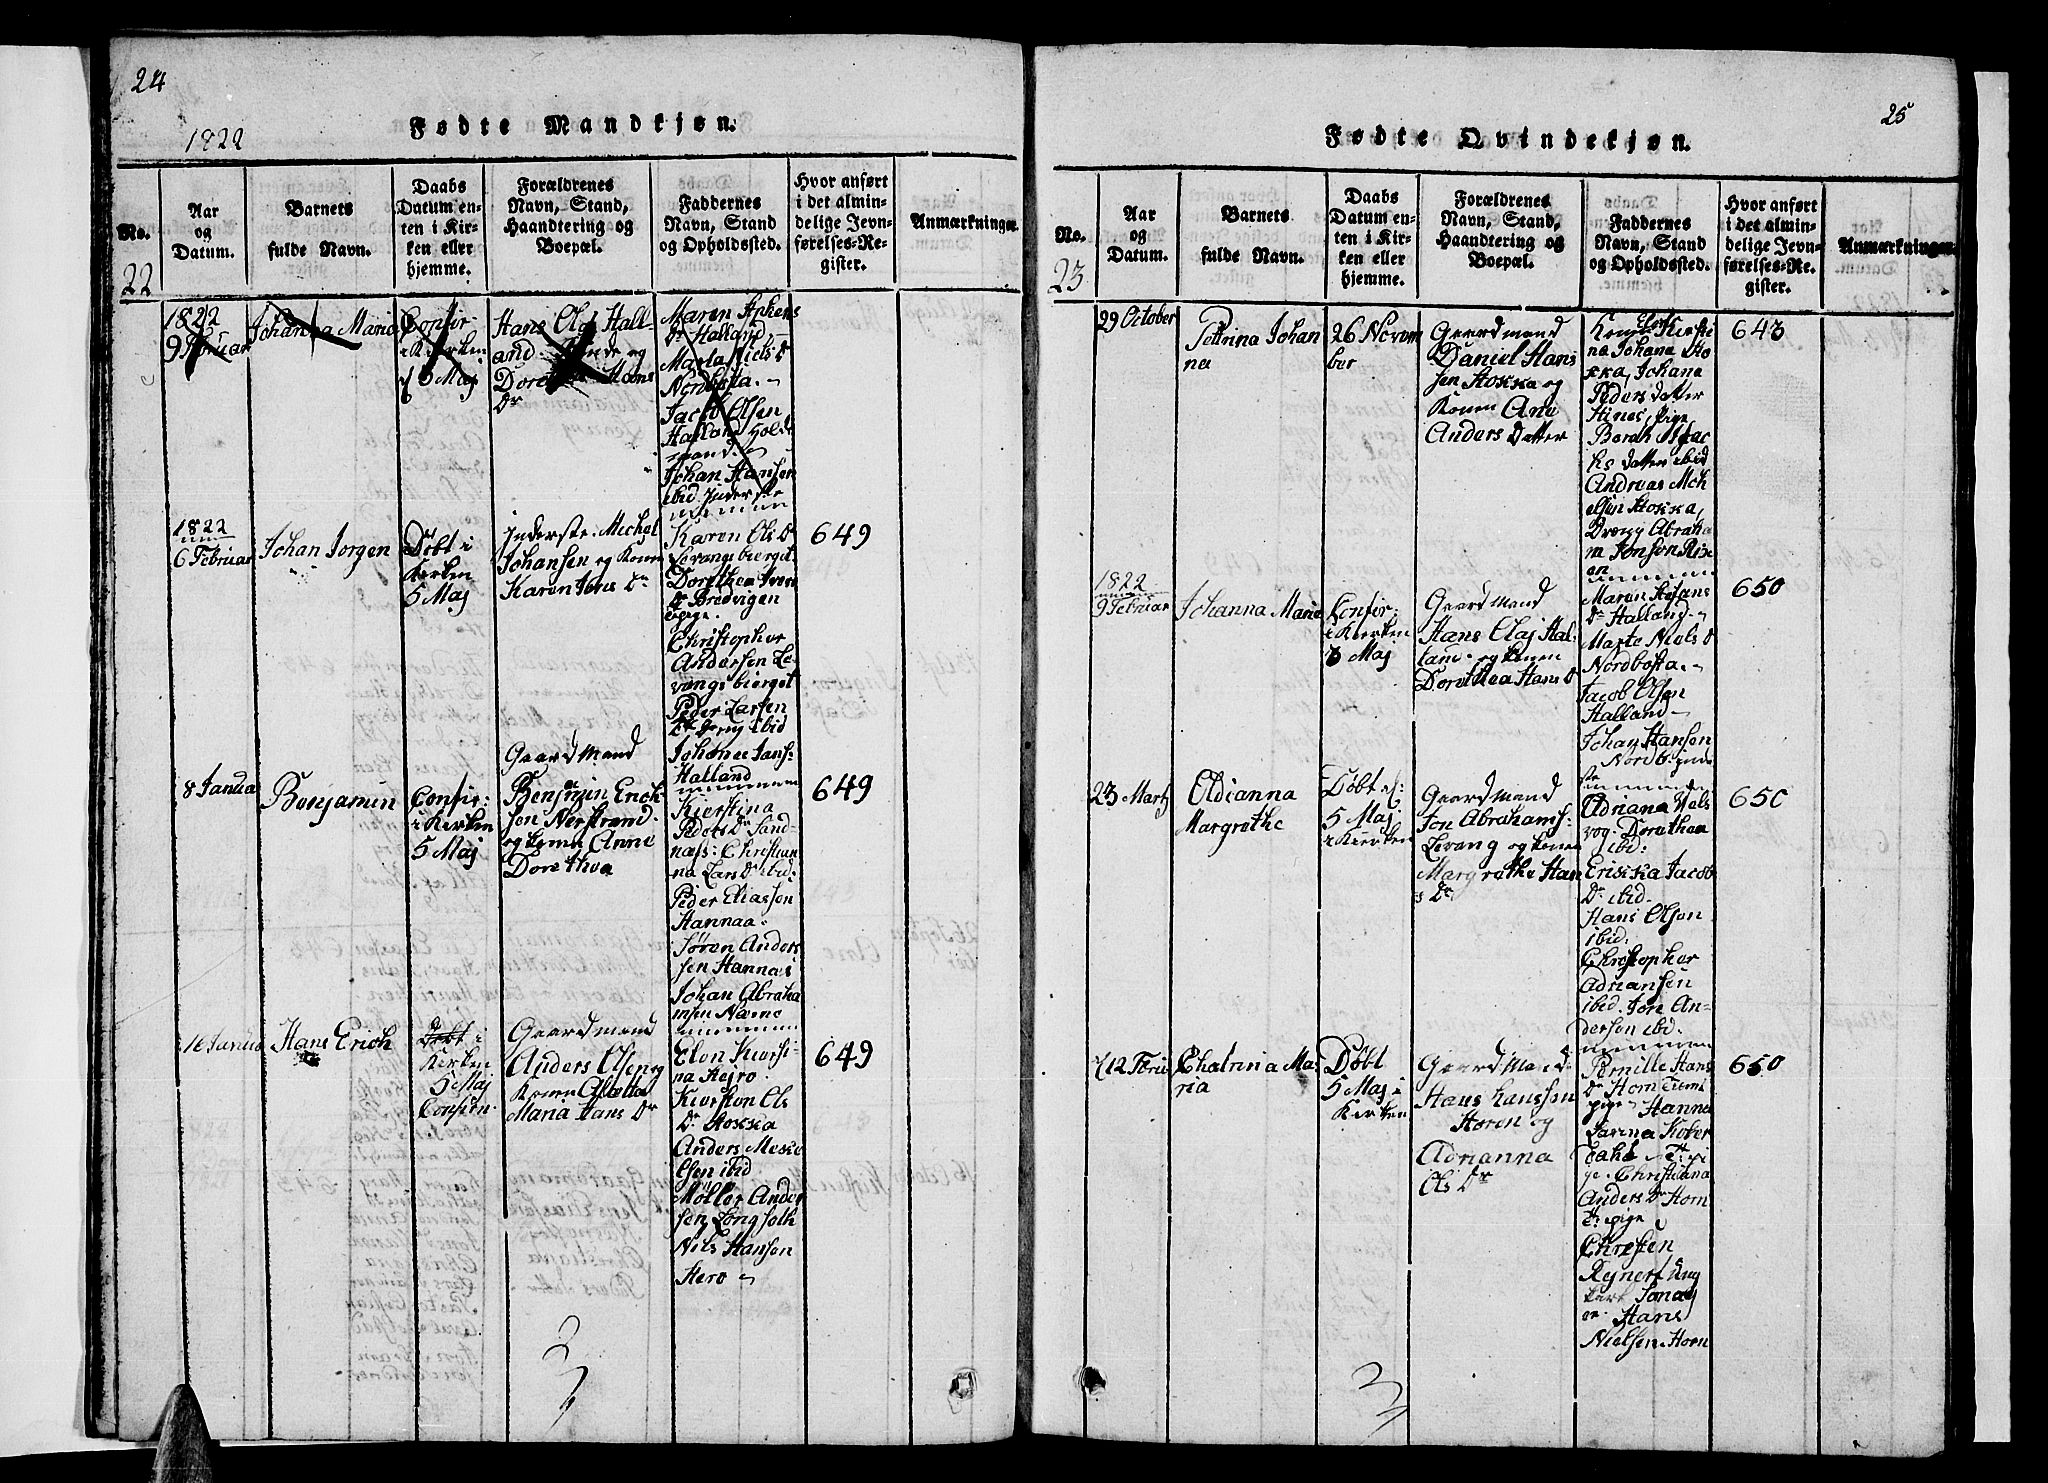 24
1822
Fødte Mandkjøn.
No.
Aar
og
Datum.
Barnets
fulde Navn.
Daabs
Datum en-
ten i Kir-
ken eller
hjemme.
Forældrenes
Navn, Stand,
Haandtering og
Boepæl.
Faddernes
Navn, Stand
og Opholdssted.
Hvor anført
i det almin-
delige Jevn-
førelses-Re-
gister.
Anmærkninger
22
1822
9 Februar
Johanna Maria
Confir-
i Kierken
5 Maj
Hans Olaj Hall-
and
og
Hans
Dr
Maren
Dr Halland
Niels Dr
Nordbosta.
Jacob Olsen
Halland
mand.
Johan Hansen
ibid Inderste
1822
6 Februar
Johan Jorgen
Döbt i
Kirken
5 Maj
Inderste Michel
Johansen og Konen
Karen Jens Dr
Karen Ols Dr
Levangsbierget
Dorethea Iver
Dr Bredvigen
pige.
Christopher
Andersen Le-
vangsbierget
Peder Larsen
Dreng ibid
Johanes Jans-
Halland
649
8 Janua
Benjamin
Confir:
i Kirken
5 Maj
Gaardmand
Benjamin Erich
sen Nerstrand
og konen Anne
Dorethea
Kierstina
Peders Dr Sand-
næss: Christian
na Lars Dr ibid:
Peder Eliassen
Hannaa-
Søren Anders
sen Hannas
Johan Abraha
msen Næsne
649
16 Janua
Hans Erich
Döbt i
Kirken
5 Maj
Confirn.
Gaardmand
Anders Olsen og
Konen
Maria Hans Dr
Elen Kiersi-
na Herø
Kiersten Ols
Dr Stokka
Anders
lsen ibid
Möller Ander
sen Longseth
Nils Hansen
Herø
649
3
25
Fødte Qvindekjøn.
No.
Aar
og
Datum.
Barnets
fulde Navn.
Daabs
Datum en-
ten i Kir-
ken eller
hjemme.
Forældrenes
Navn, Stand,
Haandtering og
Boepæl.
Faddernes
Navn, Stand
og Opholdssted.
Hvor anført
i det almin-
delige Jevn-
førelses-Re-
gister.
Anmærkninger
23
29 October
Pettrina Johan
na
26 Novem
ber
Gaardmand
Daniel Hans
sen Stokka og
Konen Ane
Anders Datter
Kiersti
na Johana Sto
kka, Johana
Peders datter
Hines, pige
Berah Isac
ks datter ibid
Andreas Mich
elsen Stokka,
Dreng Abraha
m Jonsen Rise
en
643
1822
9 Februar
Johanna Marie
Confir:
i Kierken
5 Maj
Gaardmand
Hans Olaj Hal-
land og konen
Dorethea Hans Dr
Maren
Dr Halland
Marte Niels Dr
Nordbosta.
Jacob Olsen
Halland
Johan Hansen
Nordb: Inder
ste
650
23 Martz
Oldianna
Margrethe
Døbt
5 Maj
i Kierken
Gaardmand
Jon Abrahams-
Levang og konen
Margrethe Han
s Dr
Adriana
vog- Dorothea
ibid:
Erikka Jacob
Dr ibid.
Hans Olsen
ibid.
Christopher
Adriansen
ibid. Jon An-
dersen ibid.
650
12 Febru
Chatrina Ma
ria
Døbt
5 Maj i
Kirken
Gaardmand
Hans hanssen
Horen og
Adrianna
Ols Dr
Pernille Hans
Dr Horn
pige Hanna
Christiana
Anders Dr Horn
pige
Christen
Rejnert
Hans
Nielsen Horn
650
3